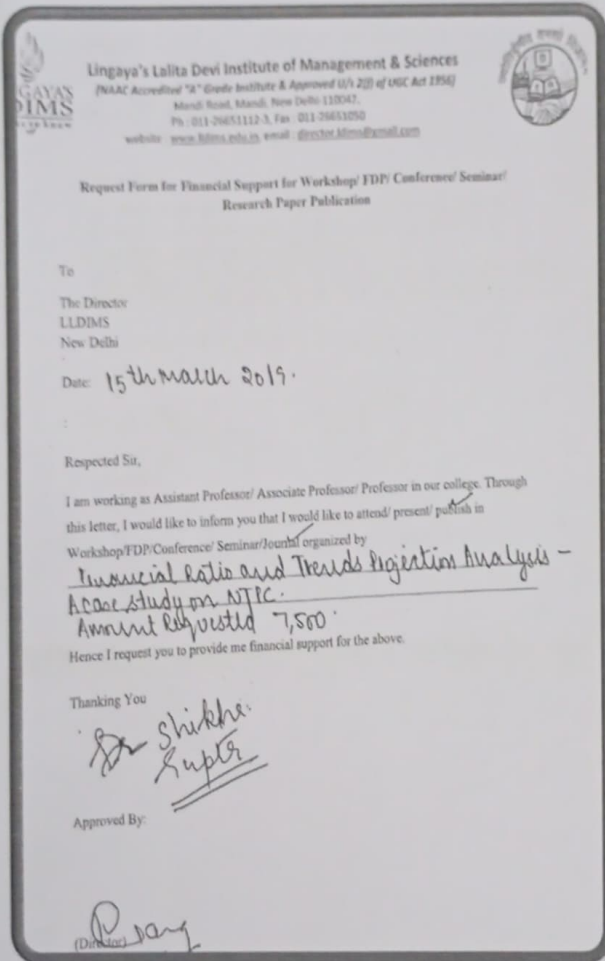 GAYA'S
DIMS
Lingaya's Lalita Devi Institute of Management & Sciences
(NAAC Accredited "A" Grade Institute & Approved U/s 2(f) of UGC Act 1956)
Mandi Road, Mandi, New Delhi-110047,
Ph : 011-26651112-3, Fax : 011-26651050
website : www.lldims.edu.in, email : director.lldims@gmail.com
Request Form for Financial Support for Workshop/ FDP/ Conference/ Seminar/
Research Paper Publication
To
The Director
LLDIMS
New Delhi
Date: 15th March 2019.
:
Respected Sir,
I am working as Assistant Professor/ Associate Professor/ Professor in our college. Through
this letter, I would like to inform you that I would like to attend/ present/ publish in
Workshop/FDP/Conference/ Seminar/Journal organized by
Financial Ratio and Trends Projection Analysis -
A case study on NTPC.
Amount Requested 7,500
Hence I request you to provide me financial support for the above.
Thanking You
Dr Shikha
Gupta
Approved By:
(Director)